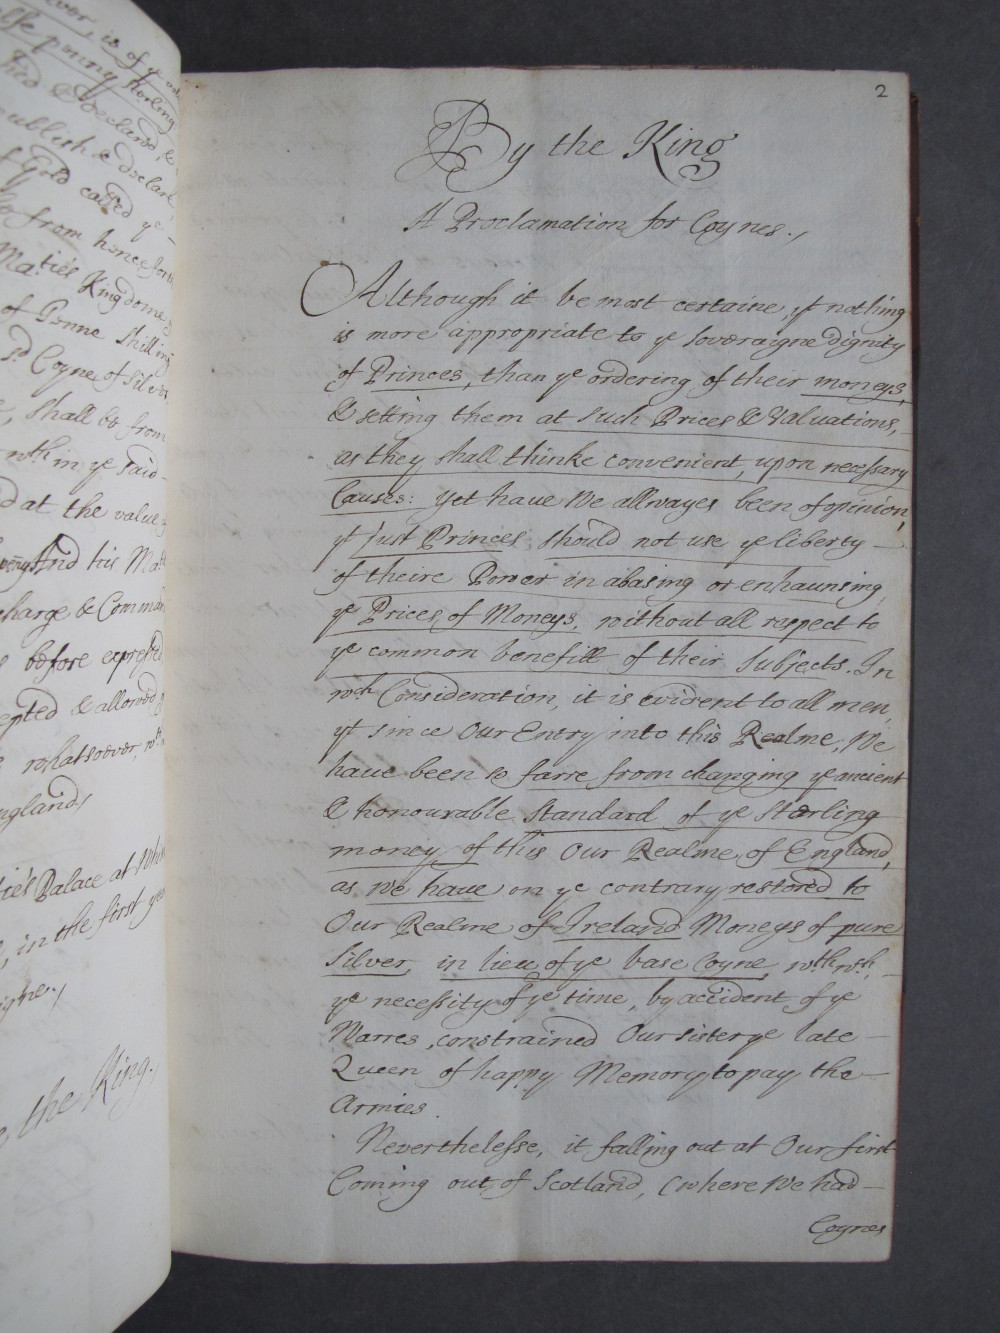 ever, is of ye
else pouny sterling
ted & declared, &
publish & declare,
of Gold called ye
from henceforth
Ma:ties Kingdome
of Tenne shilling
sd Coyne of Silver
shall be from
wthin ye said
d at the value
And his Matie
charge & Comman
s before expressed
epted & allowed
whatsoever, wth
ngland,
tie's Palace at Whit
, in the first yea
igne.,
the King.,
2
By the King
A Proclamation for Coynes.,
Although it be most certaine, yt nothing
is more appropriate to ye Soveraigne Dignity
of Princes, than ye ordering of their moneys,
& setting them at such Prices & Valuations,
as they shall thinke convenient, upon necessary
Causes: yet have We allwayes been of opinion,
yt just Princes should not use ye liberty
of theire Power in abasing or enhaunsing,
ye Prices of Moneys, without all respect to
ye common benefitt of their Subjects. In
wch Consideration, it is evident to all men,
yt since Our Entry into this Realme, We
have been so farre from changing ye ancient
& honourable Standard of ye Sterling
money of this Our Realme of England,
as We have on ye contrary restored to
Our Realme of Ireland Moneys of pure
Silver, in lieu of ye base Coyne, wth wch
ye necessity of ye time, by accident of ye
Warres, constrained Our Sister ye late
Queen of happy Memory to pay the
Armies.
Neverthelesse, it falling out at Our first
Coming out of Scotland, (where We had
Coynes